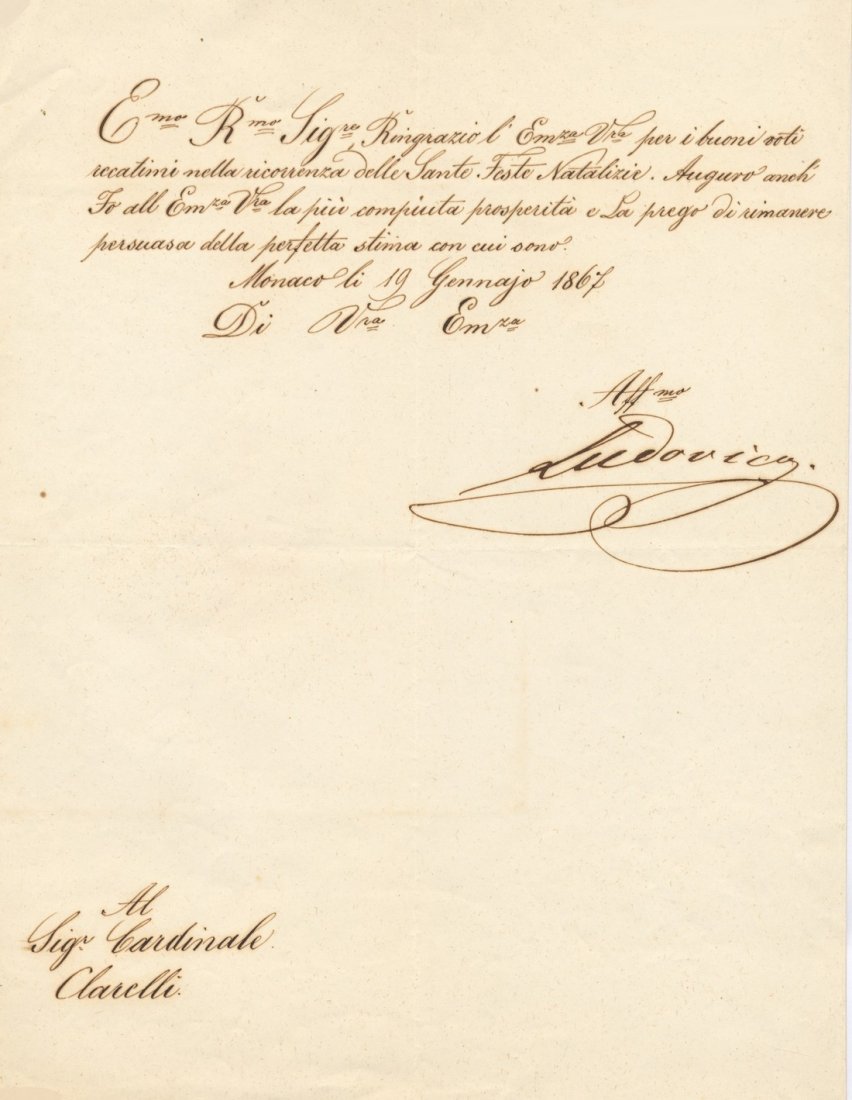 Emo Rmo Sigre, Ringrazio l' Emza Vra per i buoni voti
recatimi nella ricorrenza delle Sante Feste Natalizie. Auguro anch'
Io all Emza Vra la più compiuta prosperità e La prego di rimanere
persuasa della perfetta stima con cui sono.
Monaco li 19 Gennajo 1867
Di Vra Emza
Affmo
Ludovico.
Al
Sigr Cardinale
Clarelli.